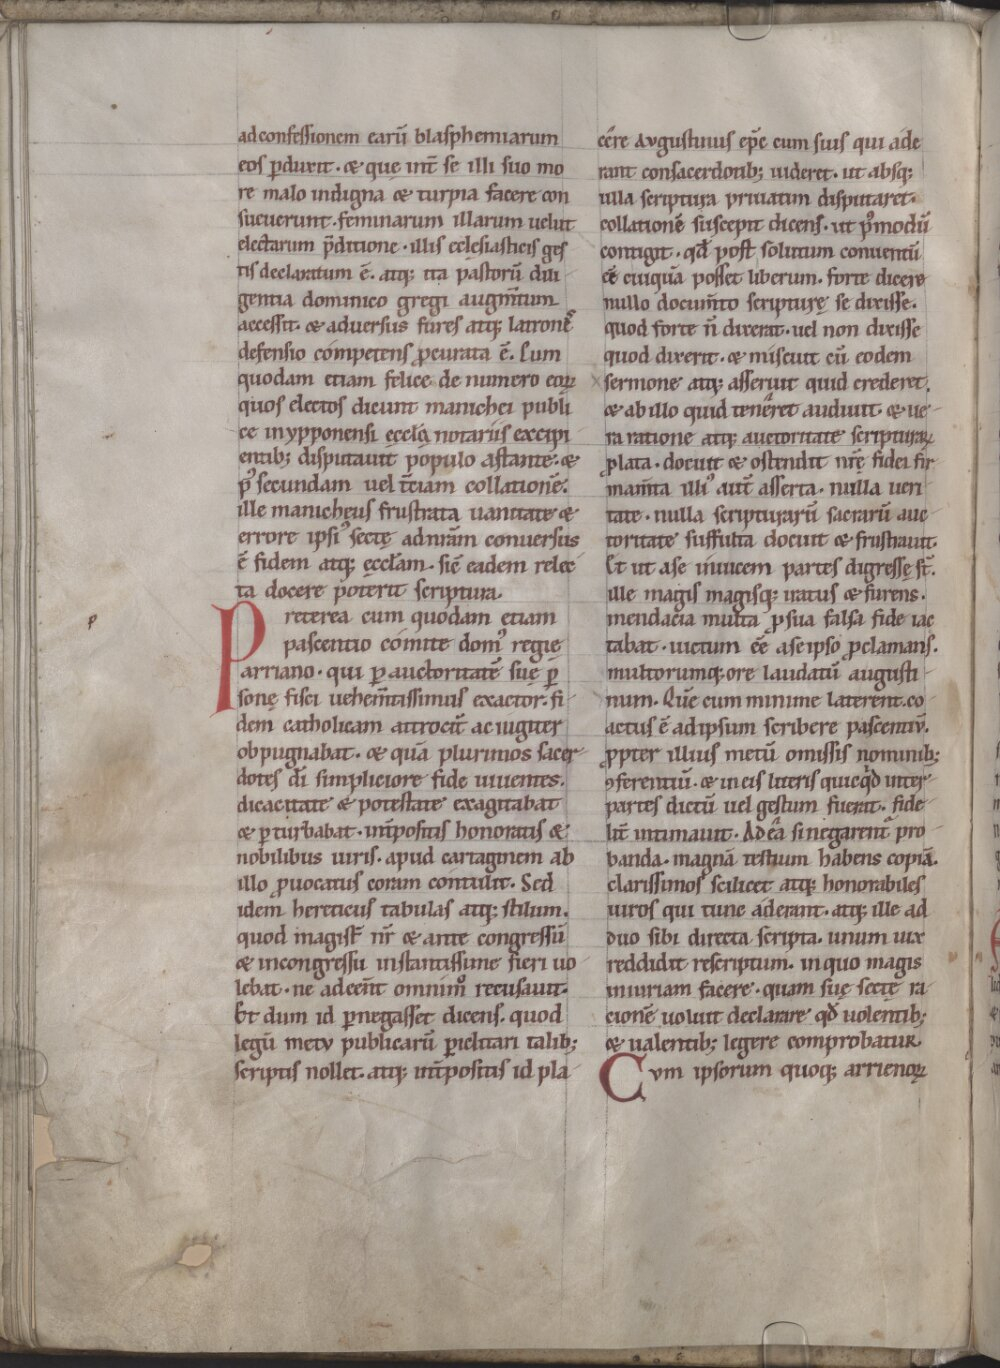 ad confessionem earū blasphemiarum
eos ꝑduxit· & que int̄ se illi suo mo
re malo indigna & turpia facere con
sueuerunt· feminarum illarum uelut
electarum p̄ditione· illis ecclesiasticis ges
tis declaratum ē· atq; ita pastorū dili
gentia dominico gregi augm̄tum
accessit· & aduersus fures atq; latrones
defensio competens ꝓcurata ē. Cum
quodam etiam felice de numero eoꝝ
quos electos dicunt manichei publi
ce in ypponensi eccla notariis excipi
entib; disputauit populo astante· &
pꝰ secundam uel t̄ciam collatione·
ille manicheus frustrata uanitate &
errore ipsiꝰ sectę ad nr̄am conuersus
ē fidem atq; ęccl̄am· sic̄ eadem relec
ta docere poterit scriptura·
Preterea cum quodam etiam
pascentio comite domꝰ regię
arriano· qui ꝑ auctoritatē suę ꝑ
sonę fisci uehem̄tissimus exactor· fi
dem catholicam attrocit̄ ac iugiter
obpugnabat· & quā plurimos sacer
dotes dī simpliciore fide uiuentes·
dicacitate & potestate exagitabat
& ꝑturbabat· int̄positis honoratis &
nobilibus uiris· apud cartaginem ab
illo ꝓuocatus coram contulit· Sed
idem hereticus tabulas atq; stilum·
quod magist̄ nr̄ & ante congressū
& in congressu instantissime fieri uo
lebat· ne adeēnt omnimꝰ recusauit·
Et dum id ꝑnegasset dicens· quod
legū metu publicarū ꝑiclitari talib;
scriptis nollet· atq; int̄positis id pla
cēre Augustinus ep̄c cum suis qui ade
rant consacerdotib; uideret· ut absq;
ulla scriptura priuatim disputaret·
collationē suscepit dicens· ut pꝰmodū
contigit· qđ post solutum conuentū
eē cuiquā posset liberum· forte dicere
nullo docum̄to scripturę se dixisse·
quod forte n̄ dixerat· uel non dixisse
quod dixerit· & miscuit cū eodem
sermone atq; asseruit quid crederet·
& ab illo quid teneret audiuit· & ue
ra ratione atq; auctoritate scripturaꝝ
ꝓlata· docuit & ostendit nr̄ę fidei fir
mam̄ta illiꝰ aut̄ asserta· nulla ueri
tate· nulla scripturarū sacrarū auc
toritate suffulta docuit & frustrauit·
Et ut a se inuicem partes digressę st̄·
ille magis magisq; iratus & furens·
mendacia multa ꝓ sua falsa fide iac
tabat· uictum eē a se ipso ꝓclamans·
multorumq; ore laudatū augusti
num· Quę cum minime laterent· co
actus ē ad ipsum scribere pascentiū·
ꝓpter illius metū omissis nominib;
ꝯferentiū· & in eis litteris quicqđ inter
partes dictū uel gestum fuerat· fide
lit̄ intimauit· Ad ea si negarent̄ pro
banda· magnā testium habens copiā·
clarissimos scilicet atq; honorabiles
uiros qui tunc aderant· atq; ille ad
duo sibi directa scripta· unum uix
reddidit rescriptum· in quo magis
iniuriam facere· quam suę sectę ra
cionē uoluit declarare qđ uolentib;
& ualentib; legere comprobatur·
Cum ipsorum quoq; arrienoꝝ